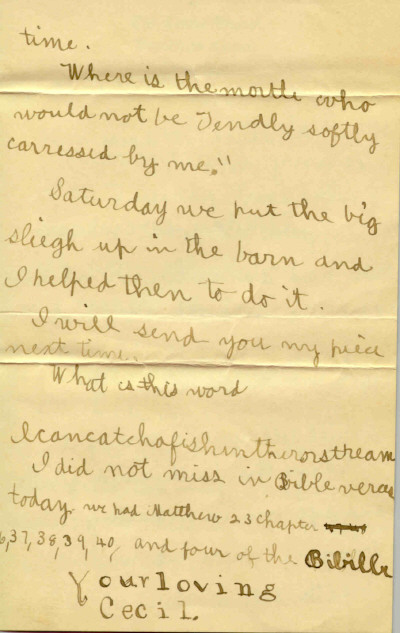 time.
Where is the mortle who
would not be Tendly softly
carressed by me."
Saturday we put the big
sliegh up in the barn and
I helped then to do it.
I will send you my piece
next time.
What is this word
Icancatchafishintherorstream
I did not miss in Bible verse
today. we had Matthew 23 chapter
6, 37, 38, 39, 40, and four of the Bibille
Your loving
Cecil.